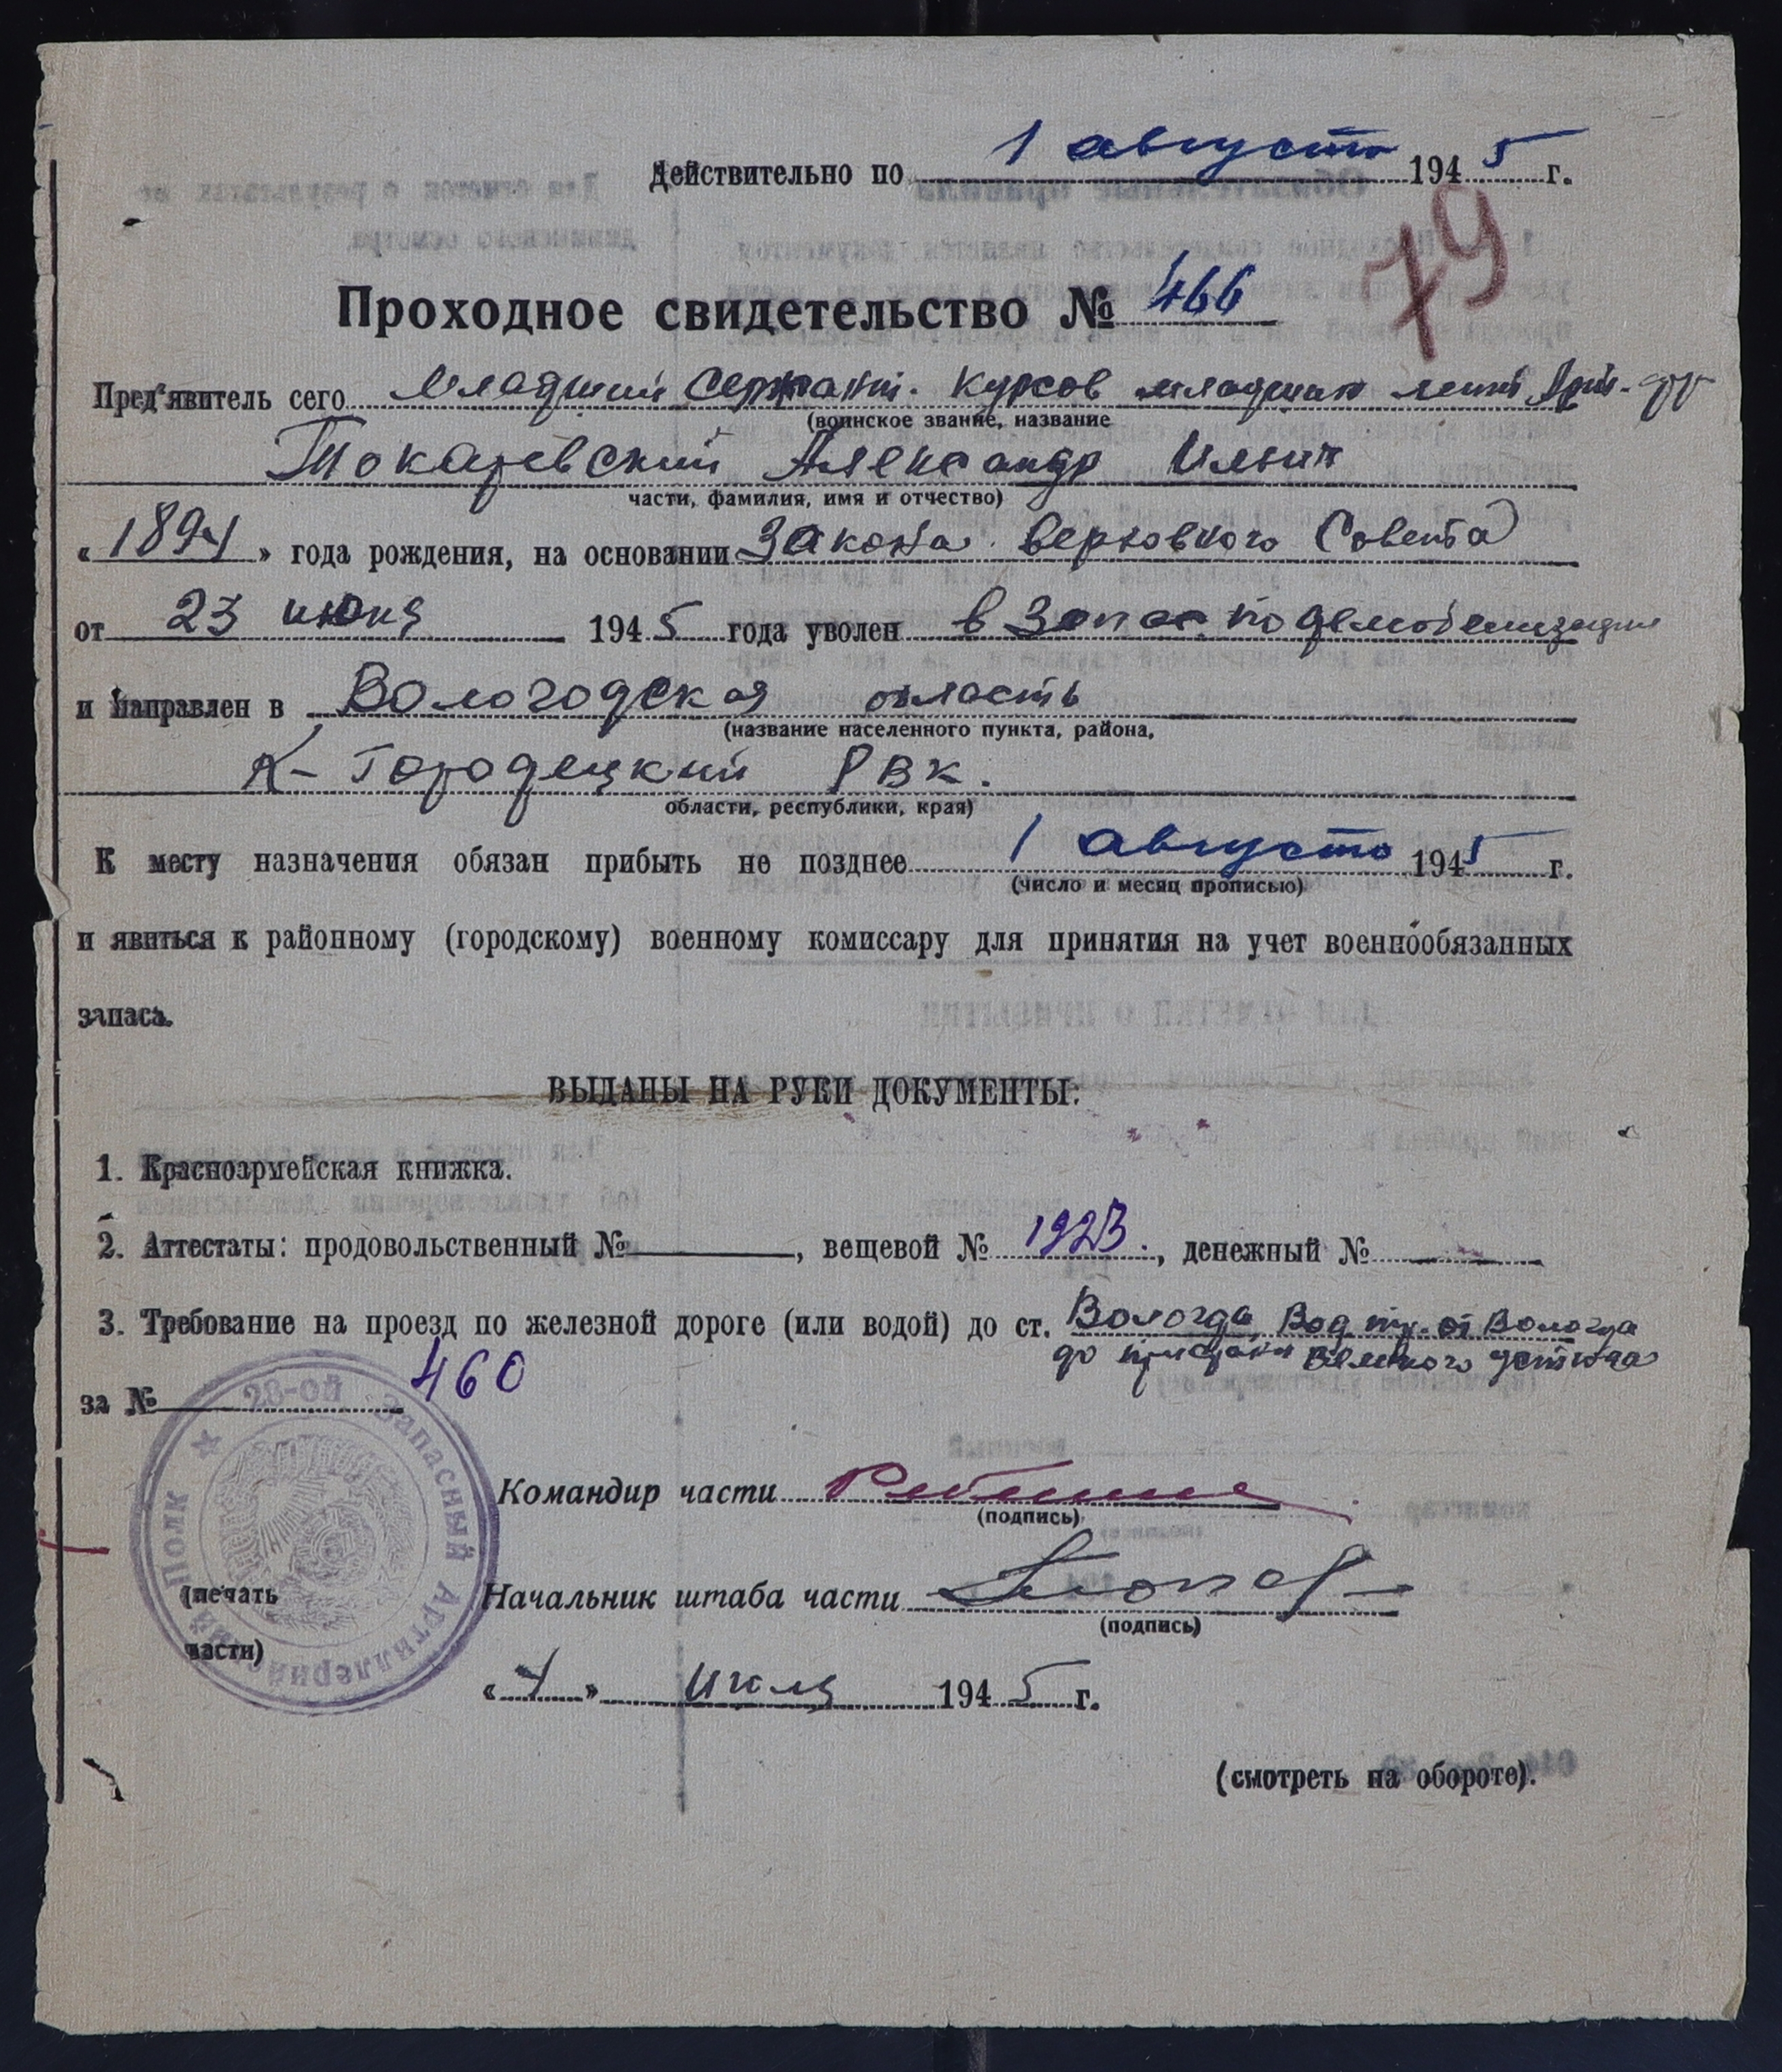 Действительно по 1 августа 1945 г.
79
Проходное свидетельство № 466
Пред'явитель сего младший сержант. курсов младших лейт. Арт.
(воинское звание, название
Токаревский Александр Ильич
части, фамилия, имя и отчество)
«1894» года рождения, на основании Закона верховного Совета
от 23 июня 1945 года уволен в Запас по демобилизации
и направлен в Вологодская область
(название населенного пункта, района,
К-Городецкий РВК.
области, республики, края)
К месту назначения обязан прибыть не позднее 1 августа 1945 г.
(число и месяц прописью)
и явиться к районному (городскому) военному комиссару для принятия на учет военнообязанных
запаса.
ВЫДАНЫ НА РУКИ ДОКУМЕНТЫ:
1. Красноармейская книжка.
2. Аттестаты: продовольственный № —, вещевой № 1923, денежный № —
3. Требование на проезд по железной дороге (или водой) до ст. Вологда, Вод. тр. от Вологда
до пристани Великого устюга
за № 460
28-ой Запасный Артиллерийский Полк
Командир части
(подпись)
(печать
части)
Начальник штаба части
(подпись)
«4» июля 1945 г.
(смотреть на обороте).